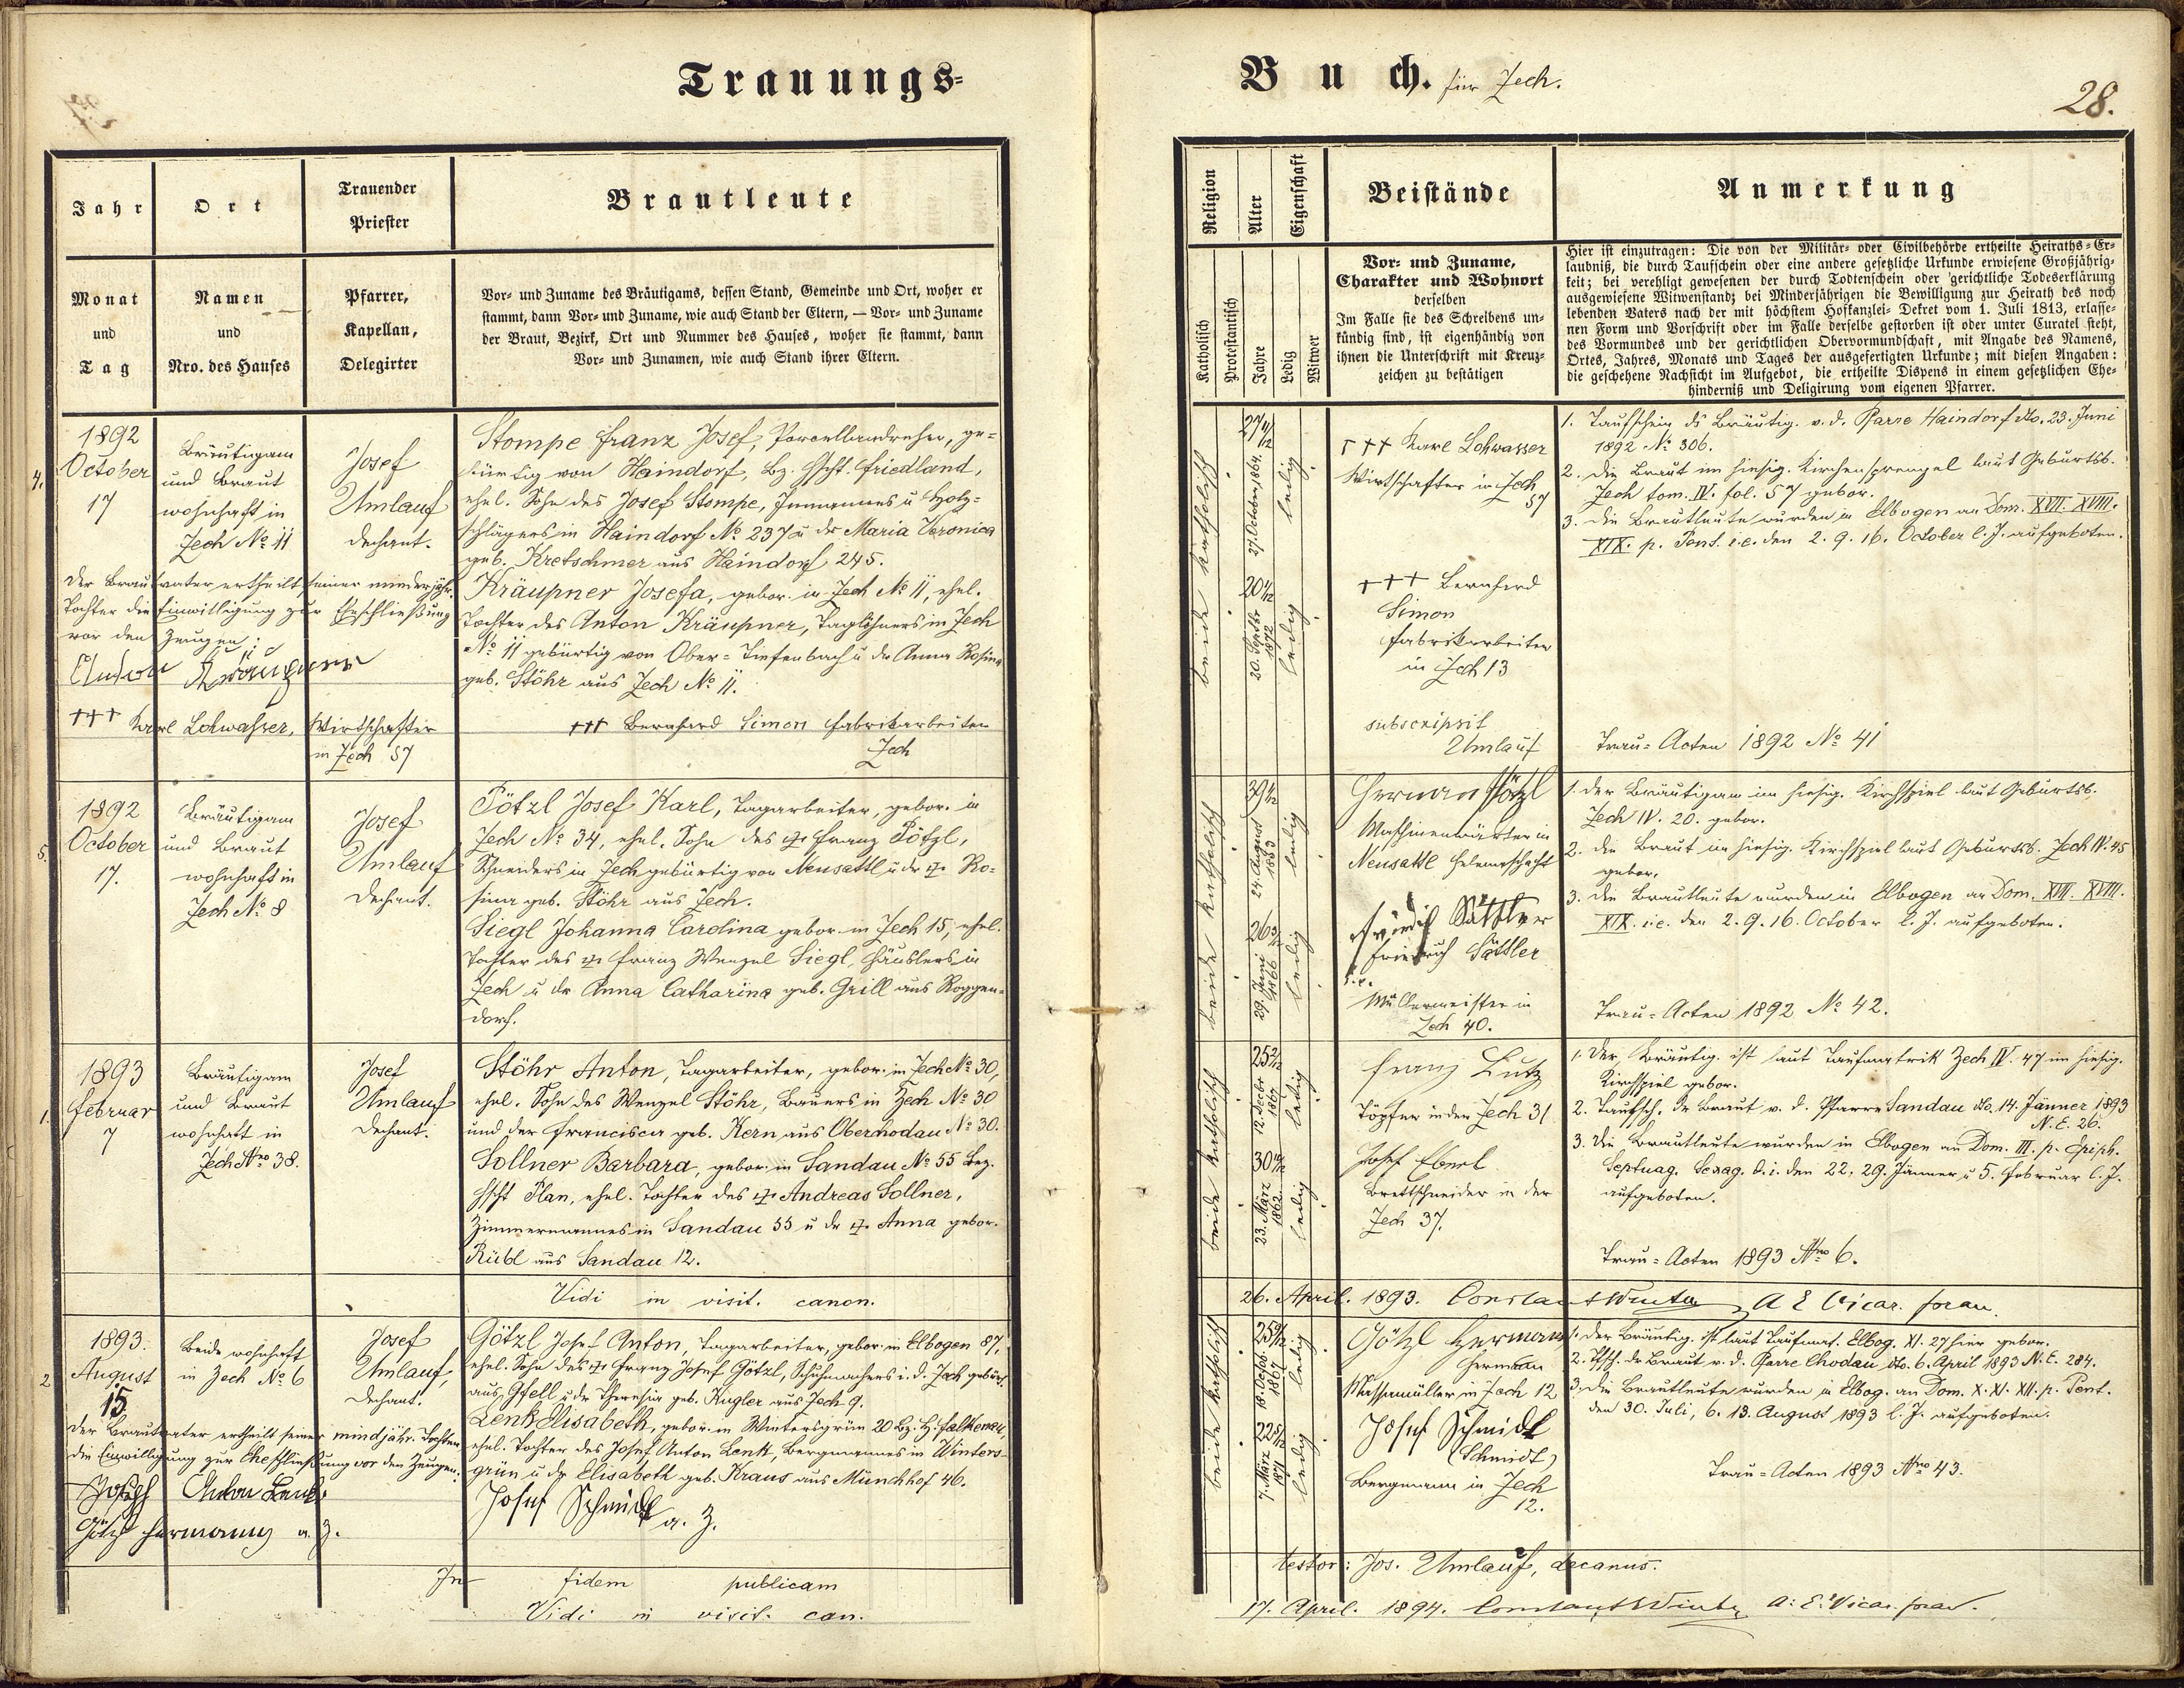 Trauungs-
Buch. für Zech.
28.
Jahr
Monat
und
Tag
Ort
Namen
und
Nro. des Hauses
Trauender
Priester
Pfarrer,
Kapellan,
Delegirter
Brautleute
Vor- und Zuname des Bräutigams, dessen Stand, Gemeinde und Ort, woher er
stammt, dann Vor- und Zuname, wie auch Stand der Eltern, — Vor- und Zuname
der Braut, Bezirk, Ort und Nummer des Hauses, woher sie stammt, dann
Vor- und Zunamen, wie auch Stand ihrer Eltern.
Religion
Katholisch
Protestantisch
Alter
Jahre
Eigenschaft
Ledig
Witwer
Beistände
Vor- und Zuname,
Charakter und Wohnort
derselben
Im Falle sie des Schreibens un-
kündig sind, ist eigenhändig von
ihnen die Unterschrift mit Kreuz-
zeichen zu bestätigen
Anmerkung
Hier ist einzutragen: Die von der Militär- oder Civilbehörde ertheilte Heiraths-Er-
laubniß, die durch Taufschein oder eine andere gesetzliche Urkunde erwiesene Großjährig-
keit; bei verehligt gewesenen der durch Todtenschein oder gerichtliche Todeserklärung
ausgewiesene Witwenstand; bei Minderjährigen die Bewilligung zur Heirath des noch
lebenden Vaters nach der mit höchstem Hofkanzlei- Dekret vom 1. Juli 1813, erlasse-
nen Form und Vorschrift oder im Falle derselbe gestorben ist oder unter Curatel steht,
des Vormundes und der gerichtlichen Obervormundschaft, mit Angabe des Namens,
Ortes, Jahres, Monats und Tages der ausgefertigten Urkunde; mit diesen Angaben:
die geschehene Nachsicht im Aufgebot, die ertheilte Dispens in einem gesetzlichen Ehe-
hinderniß und Deligirung vom eigenen Pfarrer.
4.
1892
October
17
Bräutigam
und Braut
wohnhaft in
Zech No 11
Josef
Umlauf
Dechant.
Stompe Franz Josef, Porcellandreher, ge-
bürtig von Haindorf, Bz. Hschft. Friedland,
ehel. Sohn des Josef Stompe, Inmannes u Holz-
schlägers in Haindorf No 237 u der Maria Veronica
geb. Kretschmer aus Haindorf 245.
Kräupner Josefa, gebor. in Zech No 11, ehel.
Tochter des Anton Kräupner, Taglöhners in Zech
No 11 gebürtig von Ober-Tiefenbach u der Anna Rosina
geb. Stöhr aus Zech No 11.
Der Brautvater ertheilt seiner minderjähr.
Tochter die Einwilligung zur Eheschließung
vor den Zeugen:
Anton Kräupner
+++ Karl Lohwasser, Wirtschafter
in Zech 57
+++ Bernhard Simon Fabrikarbeiter
Zech
beide katholisch
27 11/12
27. October 1864.
ledig
20 1/12
20. Septbr
1872
ledig
+++ Karl Lohwasser
Wirtschafter in Zech
57
+++ Bernhard
Simon
Fabrikarbeiter
in Zech 13
subscripsit
Umlauf
1. Taufschein ds Bräutig. v. d. Pfarre Haindorf dto. 23. Juni
1892 No 306.
2. Die Braut im hiesig. Kirchensprengel laut Geburtsb.
Zech tom. IV. fol. 57 gebor.
3. Die Brautleute wurden in Elbogen an Dom. XVII. XVIII.
XIX. p. Pent. i.e. den 2. 9. 16. October l. J. aufgeboten.
Trau-Acten 1892 No 41
5.
1892
October
17.
Bräutigam
und Braut
wohnhaft in
Zech No 8
Josef
Umlauf
Dechant.
Pötzl Josef Karl, Tagarbeiter, gebor. in
Zech No 34, ehel. Sohn des + Franz Pötzl,
Schneiders in Zech gebürtig von Neusattl u der + Ro-
sina geb. Stöhr aus Zech.
Siegl Johanna Carolina gebor. in Zech 15, ehel.
Tochter des + Franz Wenzel Siegl, Häuslers in
Zech u der Anna Catharina geb. Grill aus Roggen-
dorf.
beide katholisch
39 1/12
24. August
1853
ledig
26 3/12
29. Juni
1866
ledig
Herman Pötzl
Maschinenwärter in
Neusattl Helenaschacht
Friedrich Sättler
i.e.
Müllermeister in
Zech 40.
1. Der Bräutigam im hiesig. Kirchspiel laut Geburtsb.
Zech IV. 20. gebor.
2. Die Braut im hiesig. Kirchspiel laut Geburtsb. Zech IV. 45
gebor.
3. Die Brautleute wurden in Elbogen an Dom. XVII. XVIII.
XIX. i.e. den 2. 9. 16. October l. J. aufgeboten.
Trau-Acten 1892 No 42.
1.
1893
Februar
7
Bräutigam
und Braut
wohnhaft in
Zech Nro 38.
Josef
Umlauf
Dechant.
Stöhr Anton, Tagarbeiter, gebor. in Zech No 30,
ehel. Sohn des Wenzel Stöhr, Bauers in Zech No 30
und der Francisca geb. Kern aus Oberchodau No 30.
Sollner Barbara, gebor. in Sandau No 55 Bez.
Hschft Plan, ehel. Tochter des + Andreas Sollner,
Zimmermannes in Sandau 55 u der + Anna gebor.
Rübl aus Sandau 12.
beide katholisch
25 2/12
12. Decbr
1867
ledig
30 10/12
23. März
1862.
ledig
Franz Lutz
Töpfer in der Zech 31
Josef Eberl
Brettschneider in der
Zech 37.
1. Der Bräutig. ist laut Taufmatrik Zech IV. 47 im hiesig.
Kirchspiel gebor.
2. Taufsch. der Braut v. d. Pfarre Sandau dto. 14. Jänner 1893
N. E. 26.
3. Die Brautleute wurden in Elbogen an Dom. III. p. Epiph.
Septuag. Sexag. d. i. den 22. 29. Jänner u 5. Februar l. J.
aufgeboten.
Trau-Acten 1893 Nro 6.
Vidi in visit. canon. 26. April. 1893. Constant Winter A E Vicar. foran.
2
1893.
August
15
Beide wohnhaft
in Zech No 6
Josef
Umlauf,
Dechant.
Götzl Josef Anton, Tagarbeiter, gebor. in Elbogen 87,
ehel. Sohn des + Franz Josef Götzl, Schuhmachers i. d. Zech gebürt.
aus Gfell u der Theresia geb. Kugler aus Zech 9.
Lenk Elisabeth, gebor. in Wintersgrün 20 Bz. H. Falkenau,
ehel. Tochter des Josef Anton Lenk, Bergmannes in Winters-
grün u der Elisabeth geb. Kraus aus Münchhof 46.
Josef Schmidt a. Z.
Der Brautvater ertheilt seiner mindjähr. Tochter
die Einwilligung zur Eheschließung vor den Zeugen:
Joseph Anton Lenk
Götzl Hermann a. Z.
beide katholisch
18. October
1867
ledig
22 5/12
7. März
1871
ledig
Götzl Hermann
Herman
Massamüller in Zech 12
Josef Schmidt
(Schmidt)
Bergmann in Zech
12.
1. Der Bräutig. ist laut Taufmat. Elbog. XI. 27 hier gebor.
2. Tfsch. der Braut v. d. Pfarre Chodau dto. 6. April 1893 N. E. 284.
3. Die Brautleute wurden in Elbog. an Dom. X. XI. XII. p. Pent.
den 30. Juli, 6. 13. August 1893 l. J. aufgeboten.
Trau-Acten 1893 Nro 43.
In fidem publicam testor: Jos. Umlauf, decanus.
Vidi in visit. can. 17. April. 1894. Constant Winter A: E: Vicar. foran.